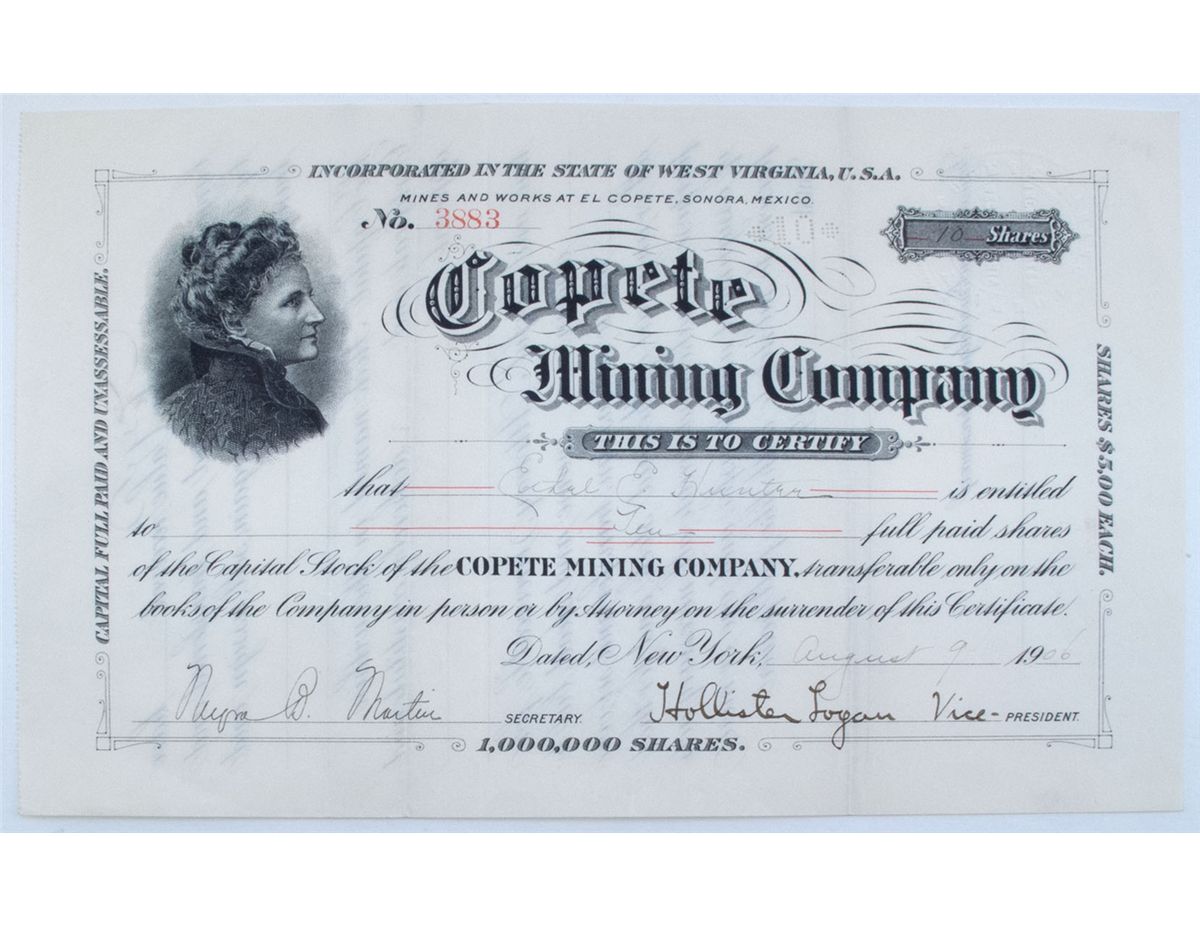 INCORPORATED IN THE STATE OF WEST VIRGINIA, U.S.A.
MINES AND WORKS AT EL COPETE, SONORA, MEXICO.
No. 3883
10
10 Shares
Copete
Mining Company
THIS IS TO CERTIFY
that E. Hunter is entitled
to Ten full paid shares
of the Capital Stock of the COPETE MINING COMPANY, transferable only on the
books of the Company in person or by Attorney on the surrender of this Certificate.
Dated, New York, August 9 1906
Martin SECRETARY.
Hollister Logan Vice-PRESIDENT.
1,000,000 SHARES.
CAPITAL FULL PAID AND UNASSESSABLE.
SHARES $5,00 EACH.